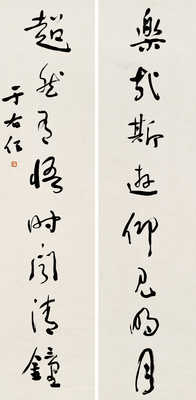 樂哉斯遊仰見明月
超然有悟時聞清鐘
于右任